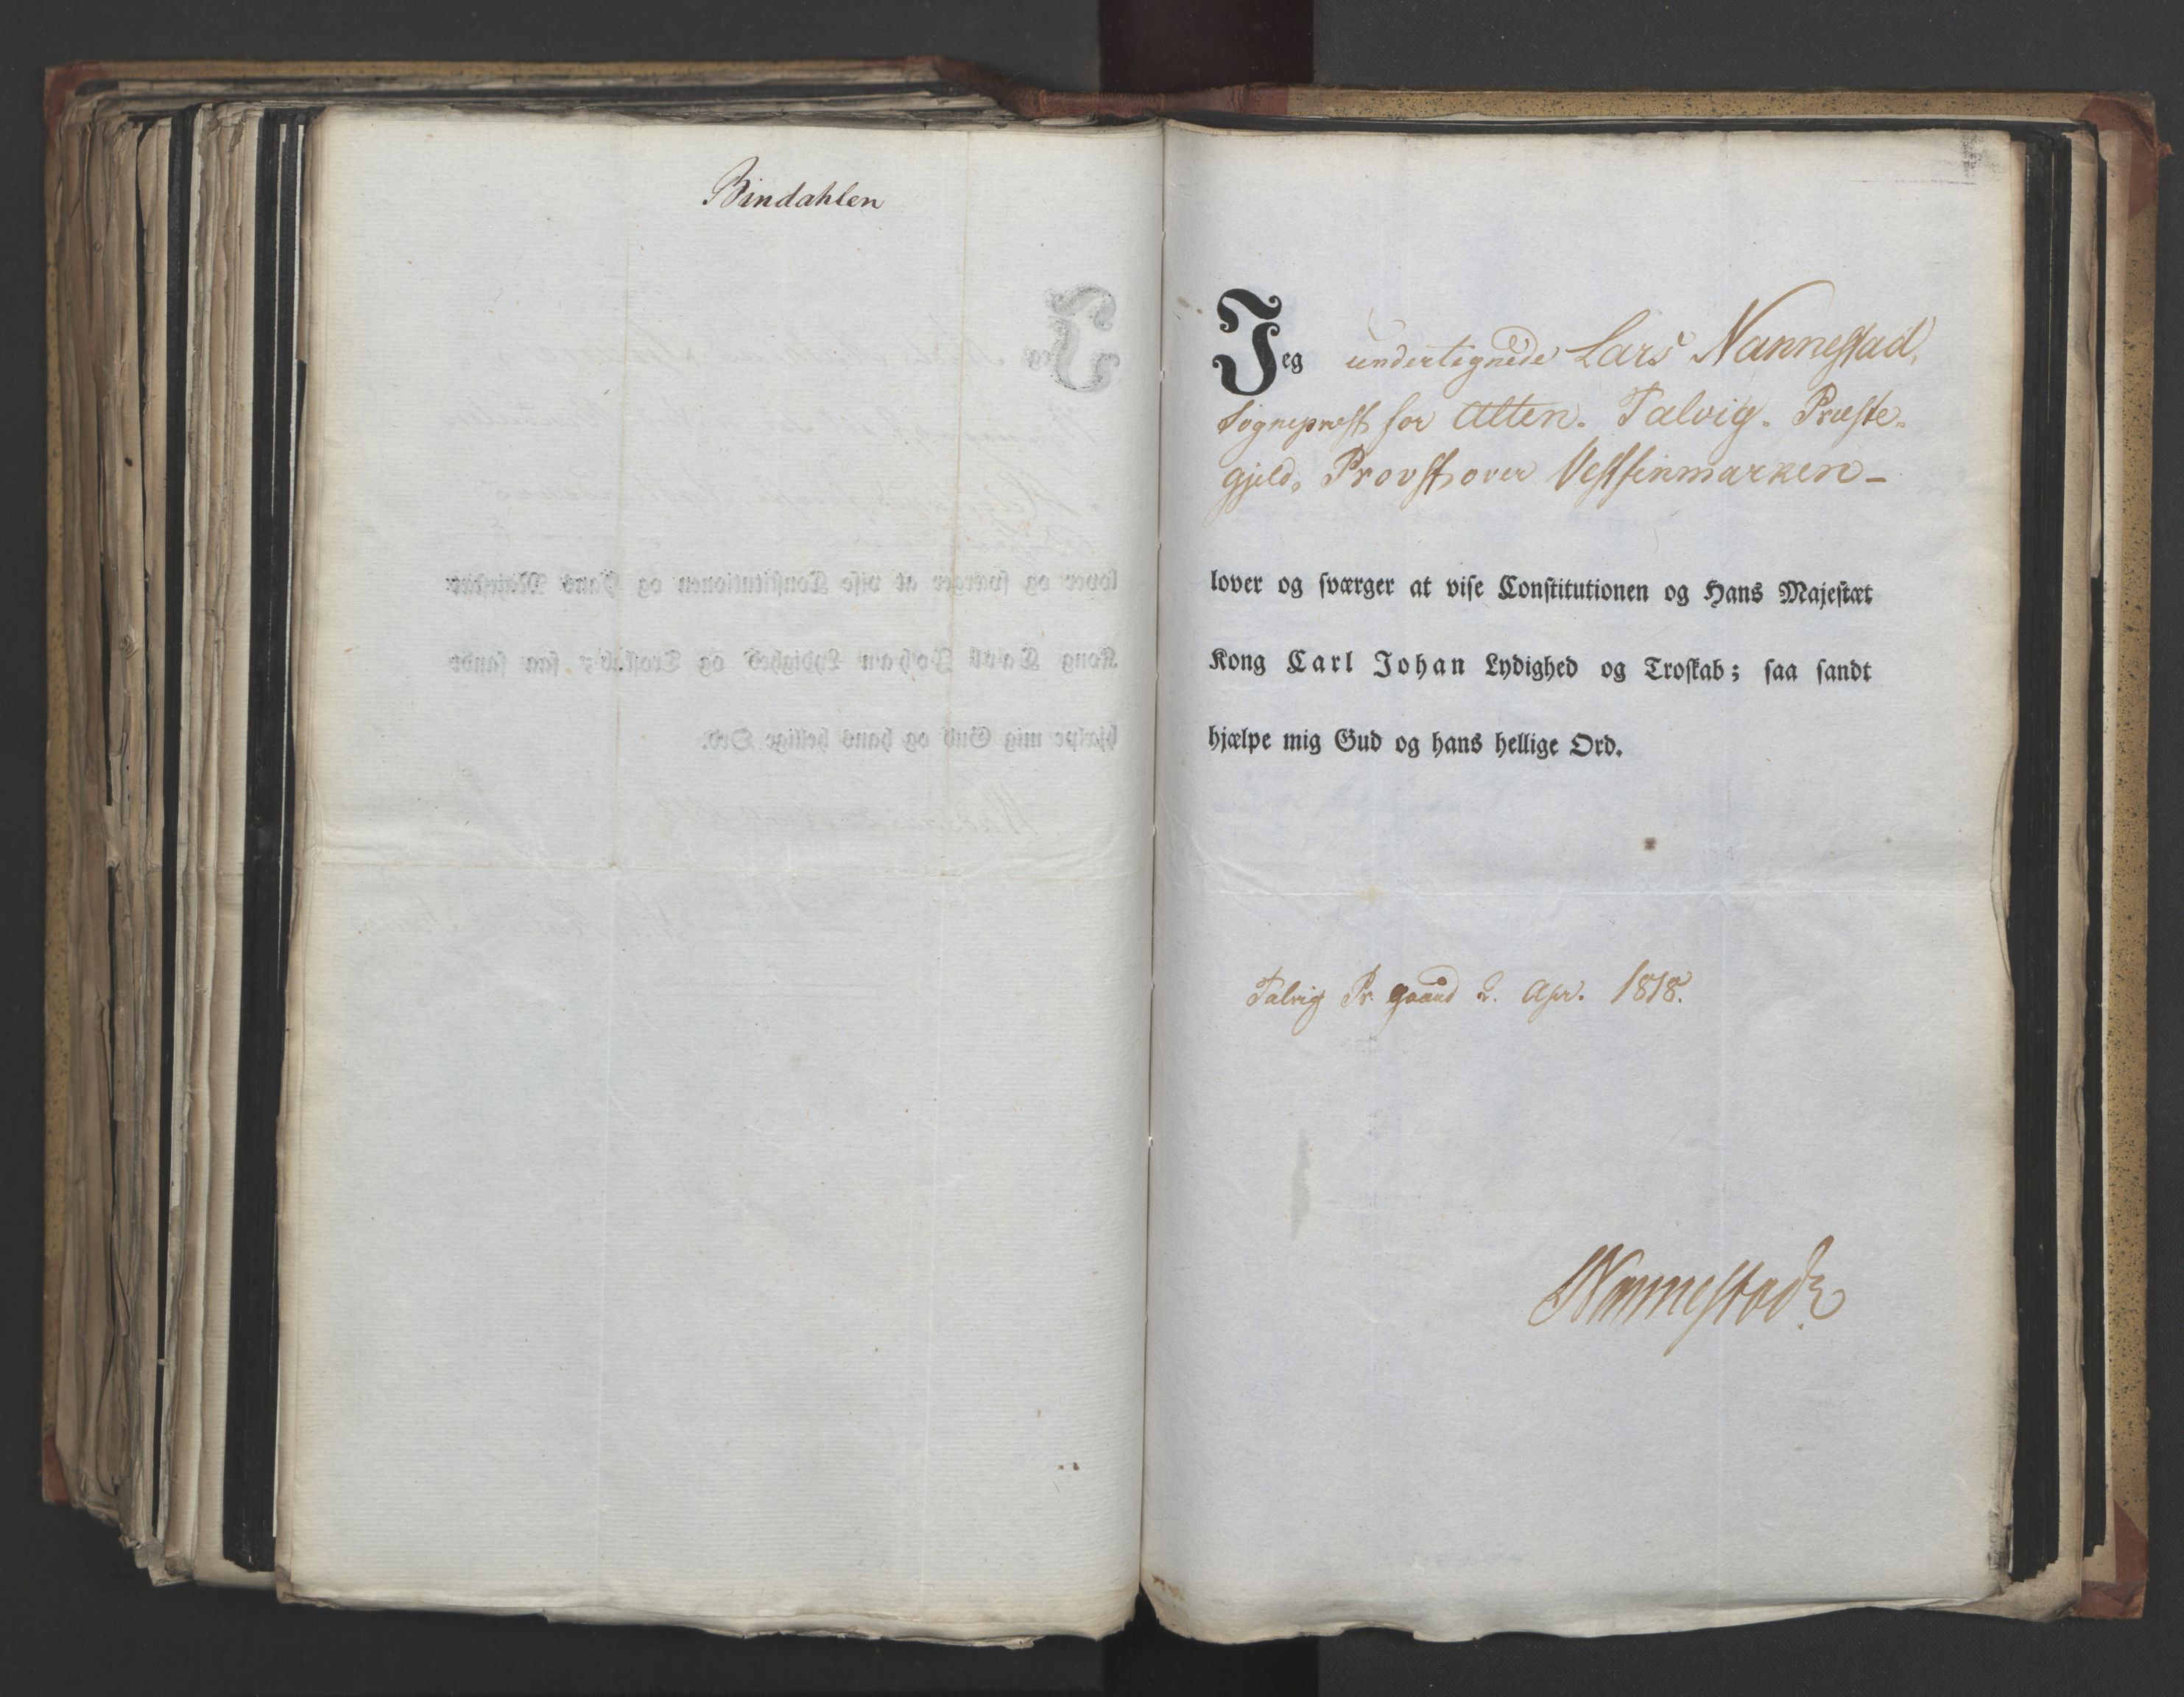 Bindahlen
Jeg undertegnede Lars Nannestad,
Sognepræst for Alten-Talvig-Præste-
gjeld, Provst over Vestfinmarken-
lover og sværger at vise Constitutionen og Hans Majestæt
Kong Carl Johan Lydighed og Troskab; saa sandt
hjælpe mig Gud og hans hellige Ord.
Talvig Pr. gaard 2. Apr. 1818.
Nannestad